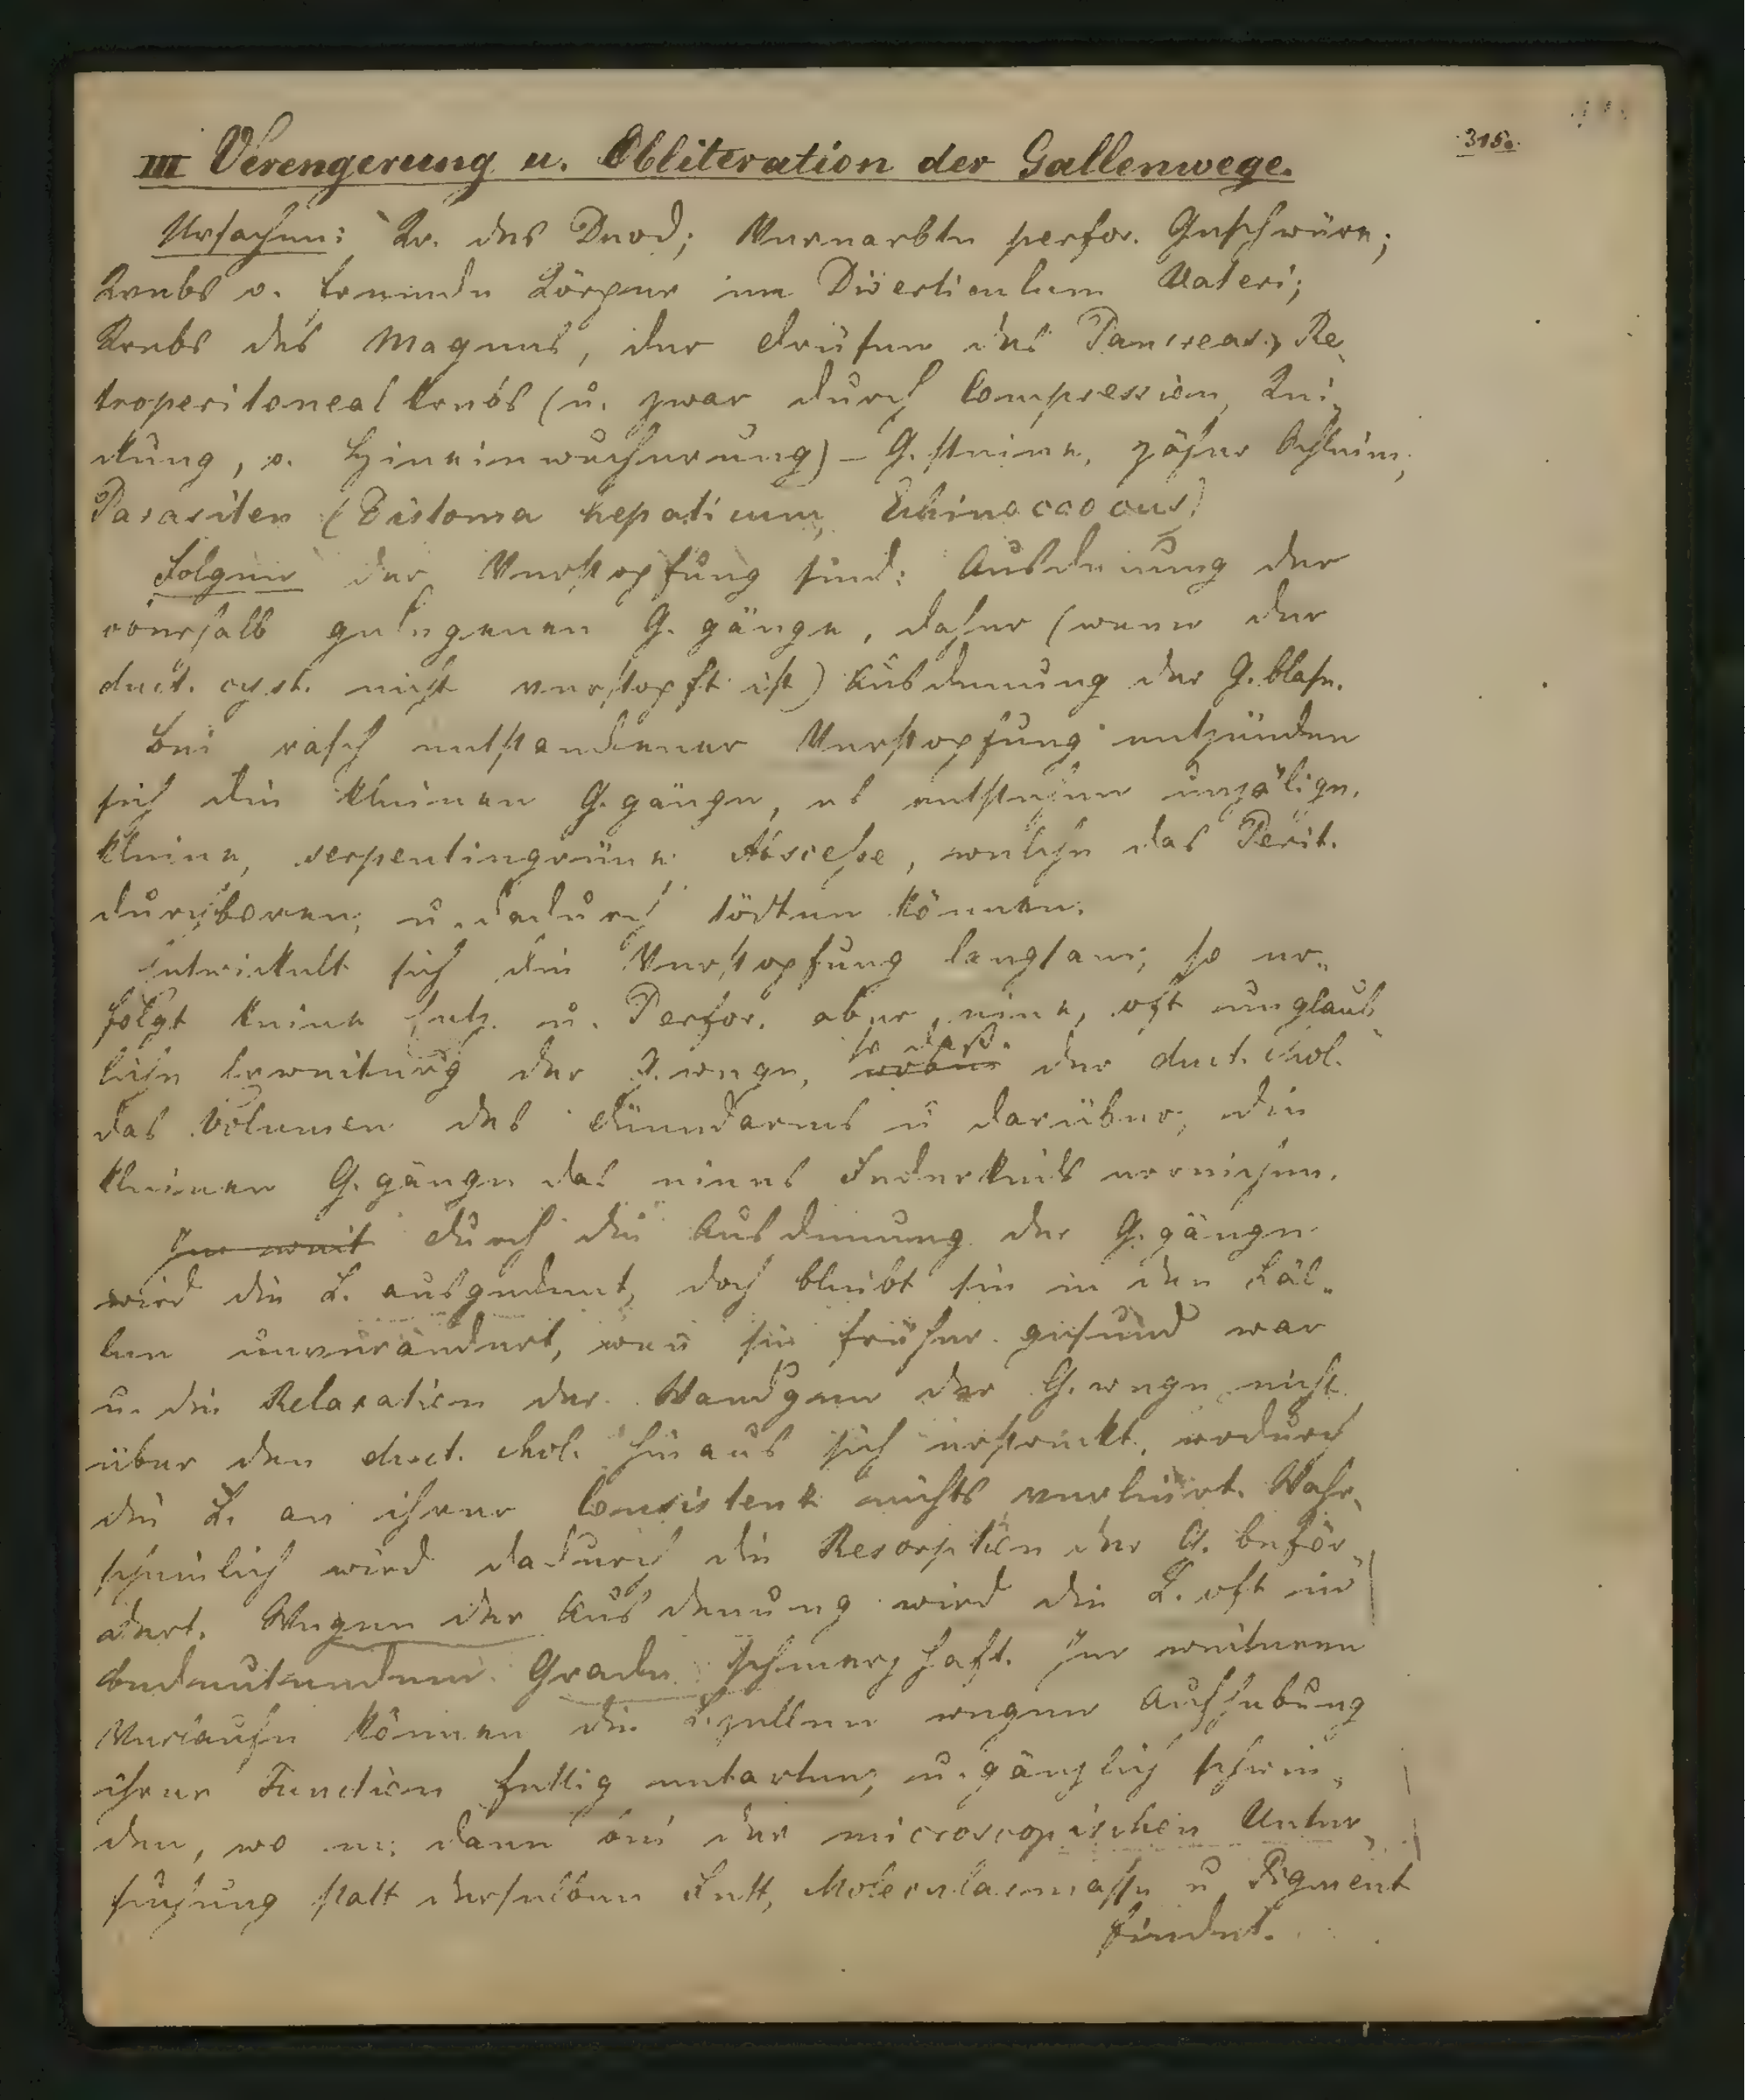 315.
III Verengerung u. Obliteration der Gallenwege.
Ursachen: Kr. des Duod; Vernarbte perfor. Geschwüre;
Krebs o. fremde Körper im Diverticulum Vateri;
Krebs des Magens, der Drüsen des Pancreas, Re-
troperitonealkrebs (u. zwar durch Compression, Kni-
ckung, o. Hineinwucherung) – G. steine, zäher Schleim,
Parasiten (Distoma hepaticum, Echinococcus)
Folgen der Verstopfung sind: Ausdenung der
oberhalb gelegenen G. gänge, daher (wenn der
duct. cyst. nicht verstopft ist) Ausdenung der G. blase.
Bei rasch entstandener Verstopfung entzünden
sich die kleinen G. gänge, es entstehen unzälige,
kleine, serpentingrüne Abscesse, welche das Perit.
durchboren, u. dadurch tödten können.
Entwickelt sich die Verstopfung langsam, so er-
folgt keine Entz. u. Perfor. aber eine, oft unglaub-
liche Erweiterung der G. wege, so daß der duct. chol.
das Volumen des Dünndarms u darüber, die
kleinen G. gänge das eines Federkiels erreichen.
Im weit durch die Ausdenung der G. gänge
wird die L. ausgedent, doch bleibt sie in den Fäl-
len unverändert, wen sie früher gesund war
u. die Relaxation der Wandgen der G. wege nicht
über den duct. chol. hinaus sich erstreckt, wodurch
die L. an ihrer Consistenz nichts verliert. Wahr-
scheinlich wird dadurch die Resorption der G. beför-
dert. Wegen der Ausdenung wird die L. oft im
bedeutendem Grade schmerzhaft. Im weiteren
Verlaufe können die L. zellen wegen Aufhebung
ihrer Function fettig entarten, u. gänzlich schwin-
den, wo m. dann bei der microscopischen Unter-
suchung statt derselben Fett, Molecularmasse u Pigment
findet.